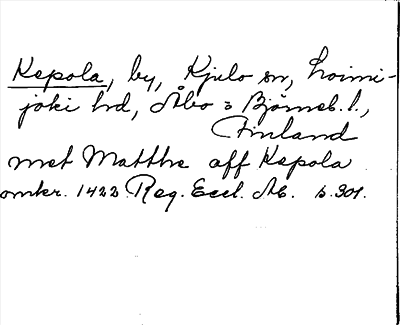 Kepola, by, Kjulo sn, Loimi-
joki hd, Åbo o Björneb. l.,
Finland
met Matthe aff Kepola
omkr. 1422 Reg. Eccl. Ab. s. 301.